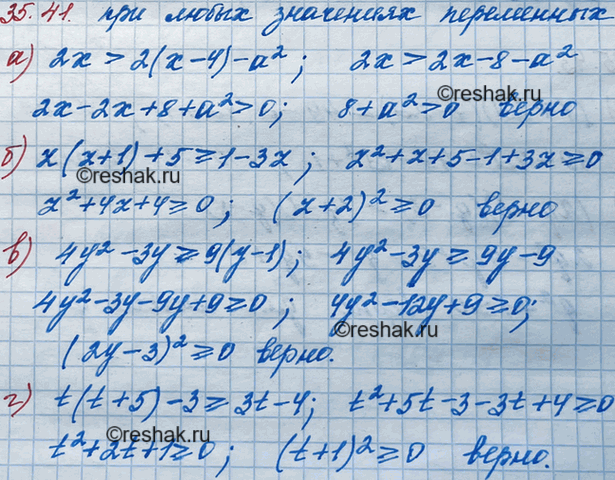 35.41. при любых значениях переменных
а) 2x > 2(x-4)-a²; 2x > 2x-8-a²
©reshak.ru
2x-2x+8+a²>0; 8+a²>0 верно
б) z(z+1)+5≥1-3z; z²+z+5-1+3z≥0
©reshak.ru
z²+4z+4≥0; (z+2)²≥0 верно
в) 4y²-3y≥9(y-1); 4y²-3y≥9y-9
4y²-3y-9y+9≥0; 4y²-12y+9≥0;
©reshak.ru
(2y-3)²≥0 верно.
г) t(t+5)-3≥3t-4; t²+5t-3-3t+4≥0
©reshak.ru
t²+2t+1≥0; (t+1)²≥0 верно.